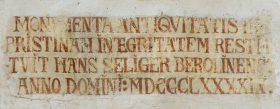 MONUMENTA ANTIQUITATIS IN
PRISTINAM INTEGRITATEM RESTI
TUIT HANS SELIGER BEROLINENS
ANNO DOMINI: MDCCCLXXXXIX